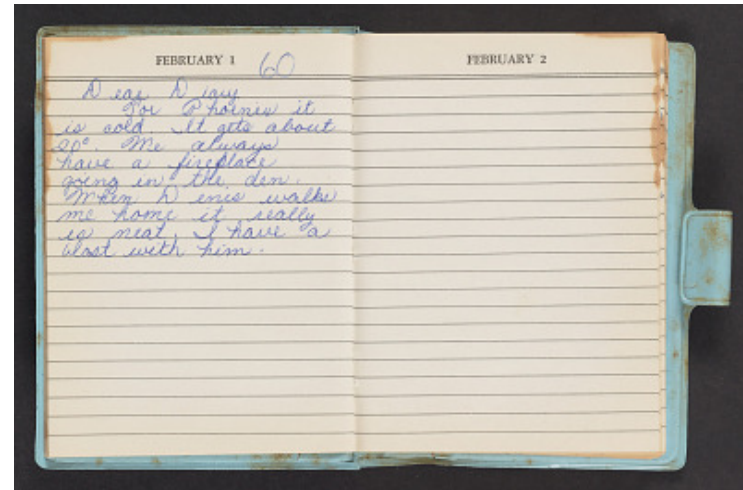 FEBRUARY 1 60
Dear Diary
For Phoenix it
is cold. It gets about
20°. We always
have a fireplace
going in the den.
When Denis walks
me home it really
is neat. I have a
blast with him.
FEBRUARY 2